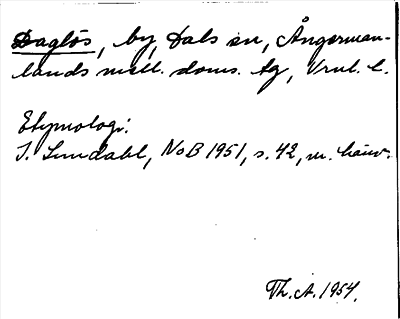 Daglös, by, Dals sn, Ångerman-
lands mell. doms. tg, Vnl. l.
Etymologi:
I. Lundahl, NoB 1951, s. 42, m. hänv.
Th. A. 1954.